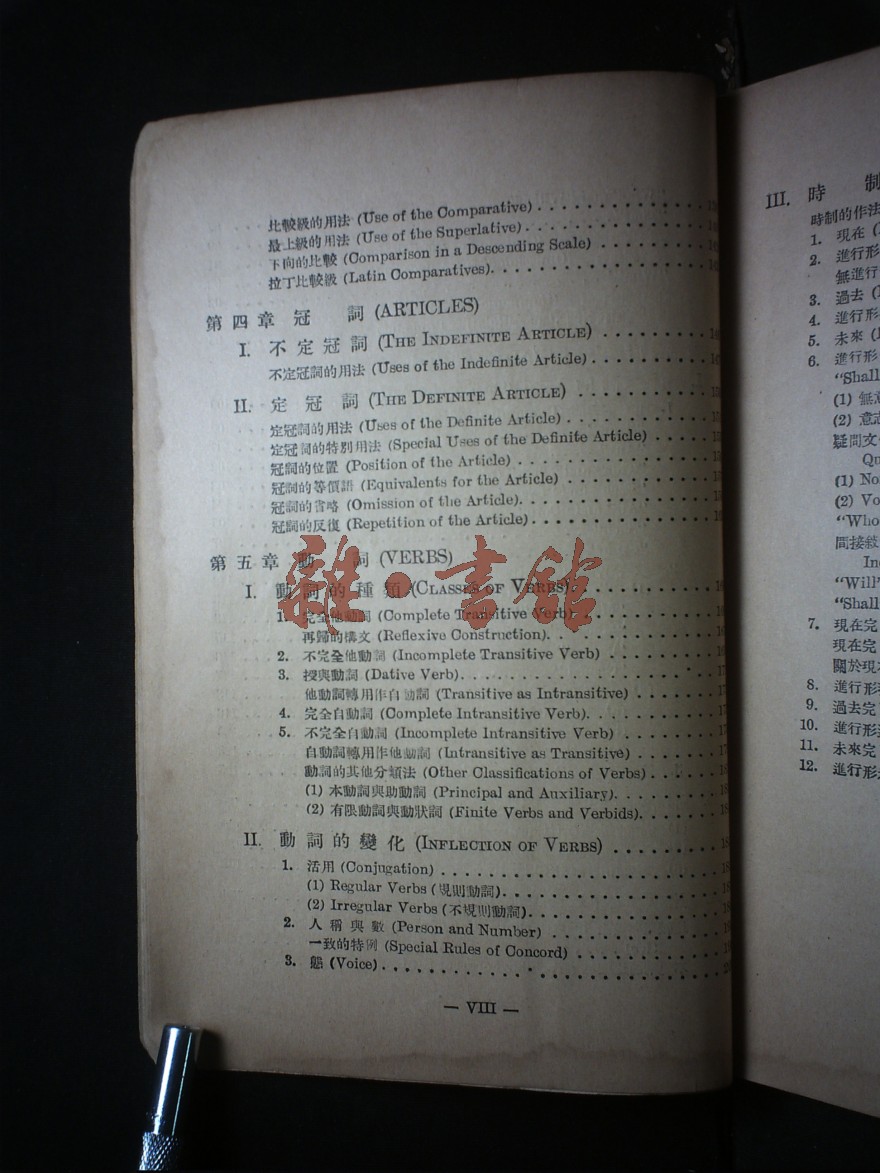 比較級的用法 (Use of the Comparative)
最上級的用法 (Use of the Superlative)
下向的比較 (Comparison in a Descending Scale)
拉丁比較級 (Latin Comparatives)
第四章 冠 詞 (ARTICLES)
I. 不定冠詞 (THE INDEFINITE ARTICLE)
不定冠詞的用法 (Uses of the Indefinite Article)
II. 定冠詞 (THE DEFINITE ARTICLE)
定冠詞的用法 (Uses of the Definite Article)
定冠詞的特別用法 (Special Uses of the Definite Article)
冠詞的位置 (Position of the Article)
冠詞的等價語 (Equivalents for the Article)
冠詞的省略 (Omission of the Article)
冠詞的反復 (Repetition of the Article)
第五章 動 詞 (VERBS)
I. 動詞的種類 (CLASSES OF VERBS)
1. 完全他動詞 (Complete Transitive Verb)
再歸的構文 (Reflexive Construction)
2. 不完全他動詞 (Incomplete Transitive Verb)
3. 授與動詞 (Dative Verb)
他動詞轉用作自動詞 (Transitive as Intransitive)
4. 完全自動詞 (Complete Intransitive Verb)
5. 不完全自動詞 (Incomplete Intransitive Verb)
自動詞轉用作他動詞 (Intransitive as Transitive)
動詞的其他分類法 (Other Classifications of Verbs)
(1) 本動詞與助動詞 (Principal and Auxiliary)
(2) 有限動詞與動狀詞 (Finite Verbs and Verbids)
II. 動詞的變化 (INFLECTION OF VERBS)
1. 活用 (Conjugation)
(1) Regular Verbs (規則動詞)
(2) Irregular Verbs (不規則動詞)
2. 人稱與數 (Person and Number)
一致的特例 (Special Rules of Concord)
3. 態 (Voice)
— VIII —
雜·書館
III. 時 制
時制的作法
1. 現在
2. 進行形
無進行
3. 過去
4. 進行形
5. 未來
6. 進行形
"Shall
(1) 無意
(2) 意志
疑問文
Qu
(1) No
(2) Vo
"Who
間接敘
In
"Will"
"Shall
7. 現在完
現在完
關於現
8. 進行形
9. 過去完
10. 進行形
11. 未來完
12. 進行形